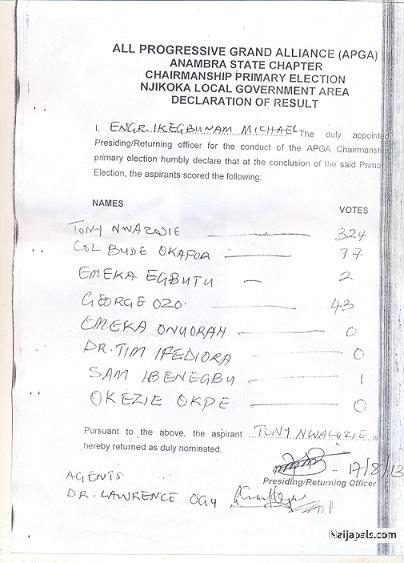 ALL PROGRESSIVE GRAND ALLIANCE (APGA)
ANAMBRA STATE CHAPTER
CHAIRMANSHIP PRIMARY ELECTION
NJIKOKA LOCAL GOVERNMENT AREA
DECLARATION OF RESULT
I, ENGR. IKEGBUNAM MICHAEL The duly appointed
Presiding/Returning officer for the conduct of the APGA Chairmanship
primary election humbly declare that at the conclusion of the said Prima
Election, the aspirants scored the following:
NAMES VOTES
TONY NWAZOJIE 324
COL BUDE OKAFOR 77
EMEKA EGBUTU 2
GEORGE OZO 43
EMEKA ONUORAH 0
DR. TIM IFEDIORA 0
SAM IBENEGBU 1
OKEZIE OKPE 0
Pursuant to the above, the aspirant TONY NWALOZIE is
hereby returned as duly nominated.
17/8/13
Presiding/Returning Officer
AGENTS
DR. LAWRENCE OGU
Naijapals.com